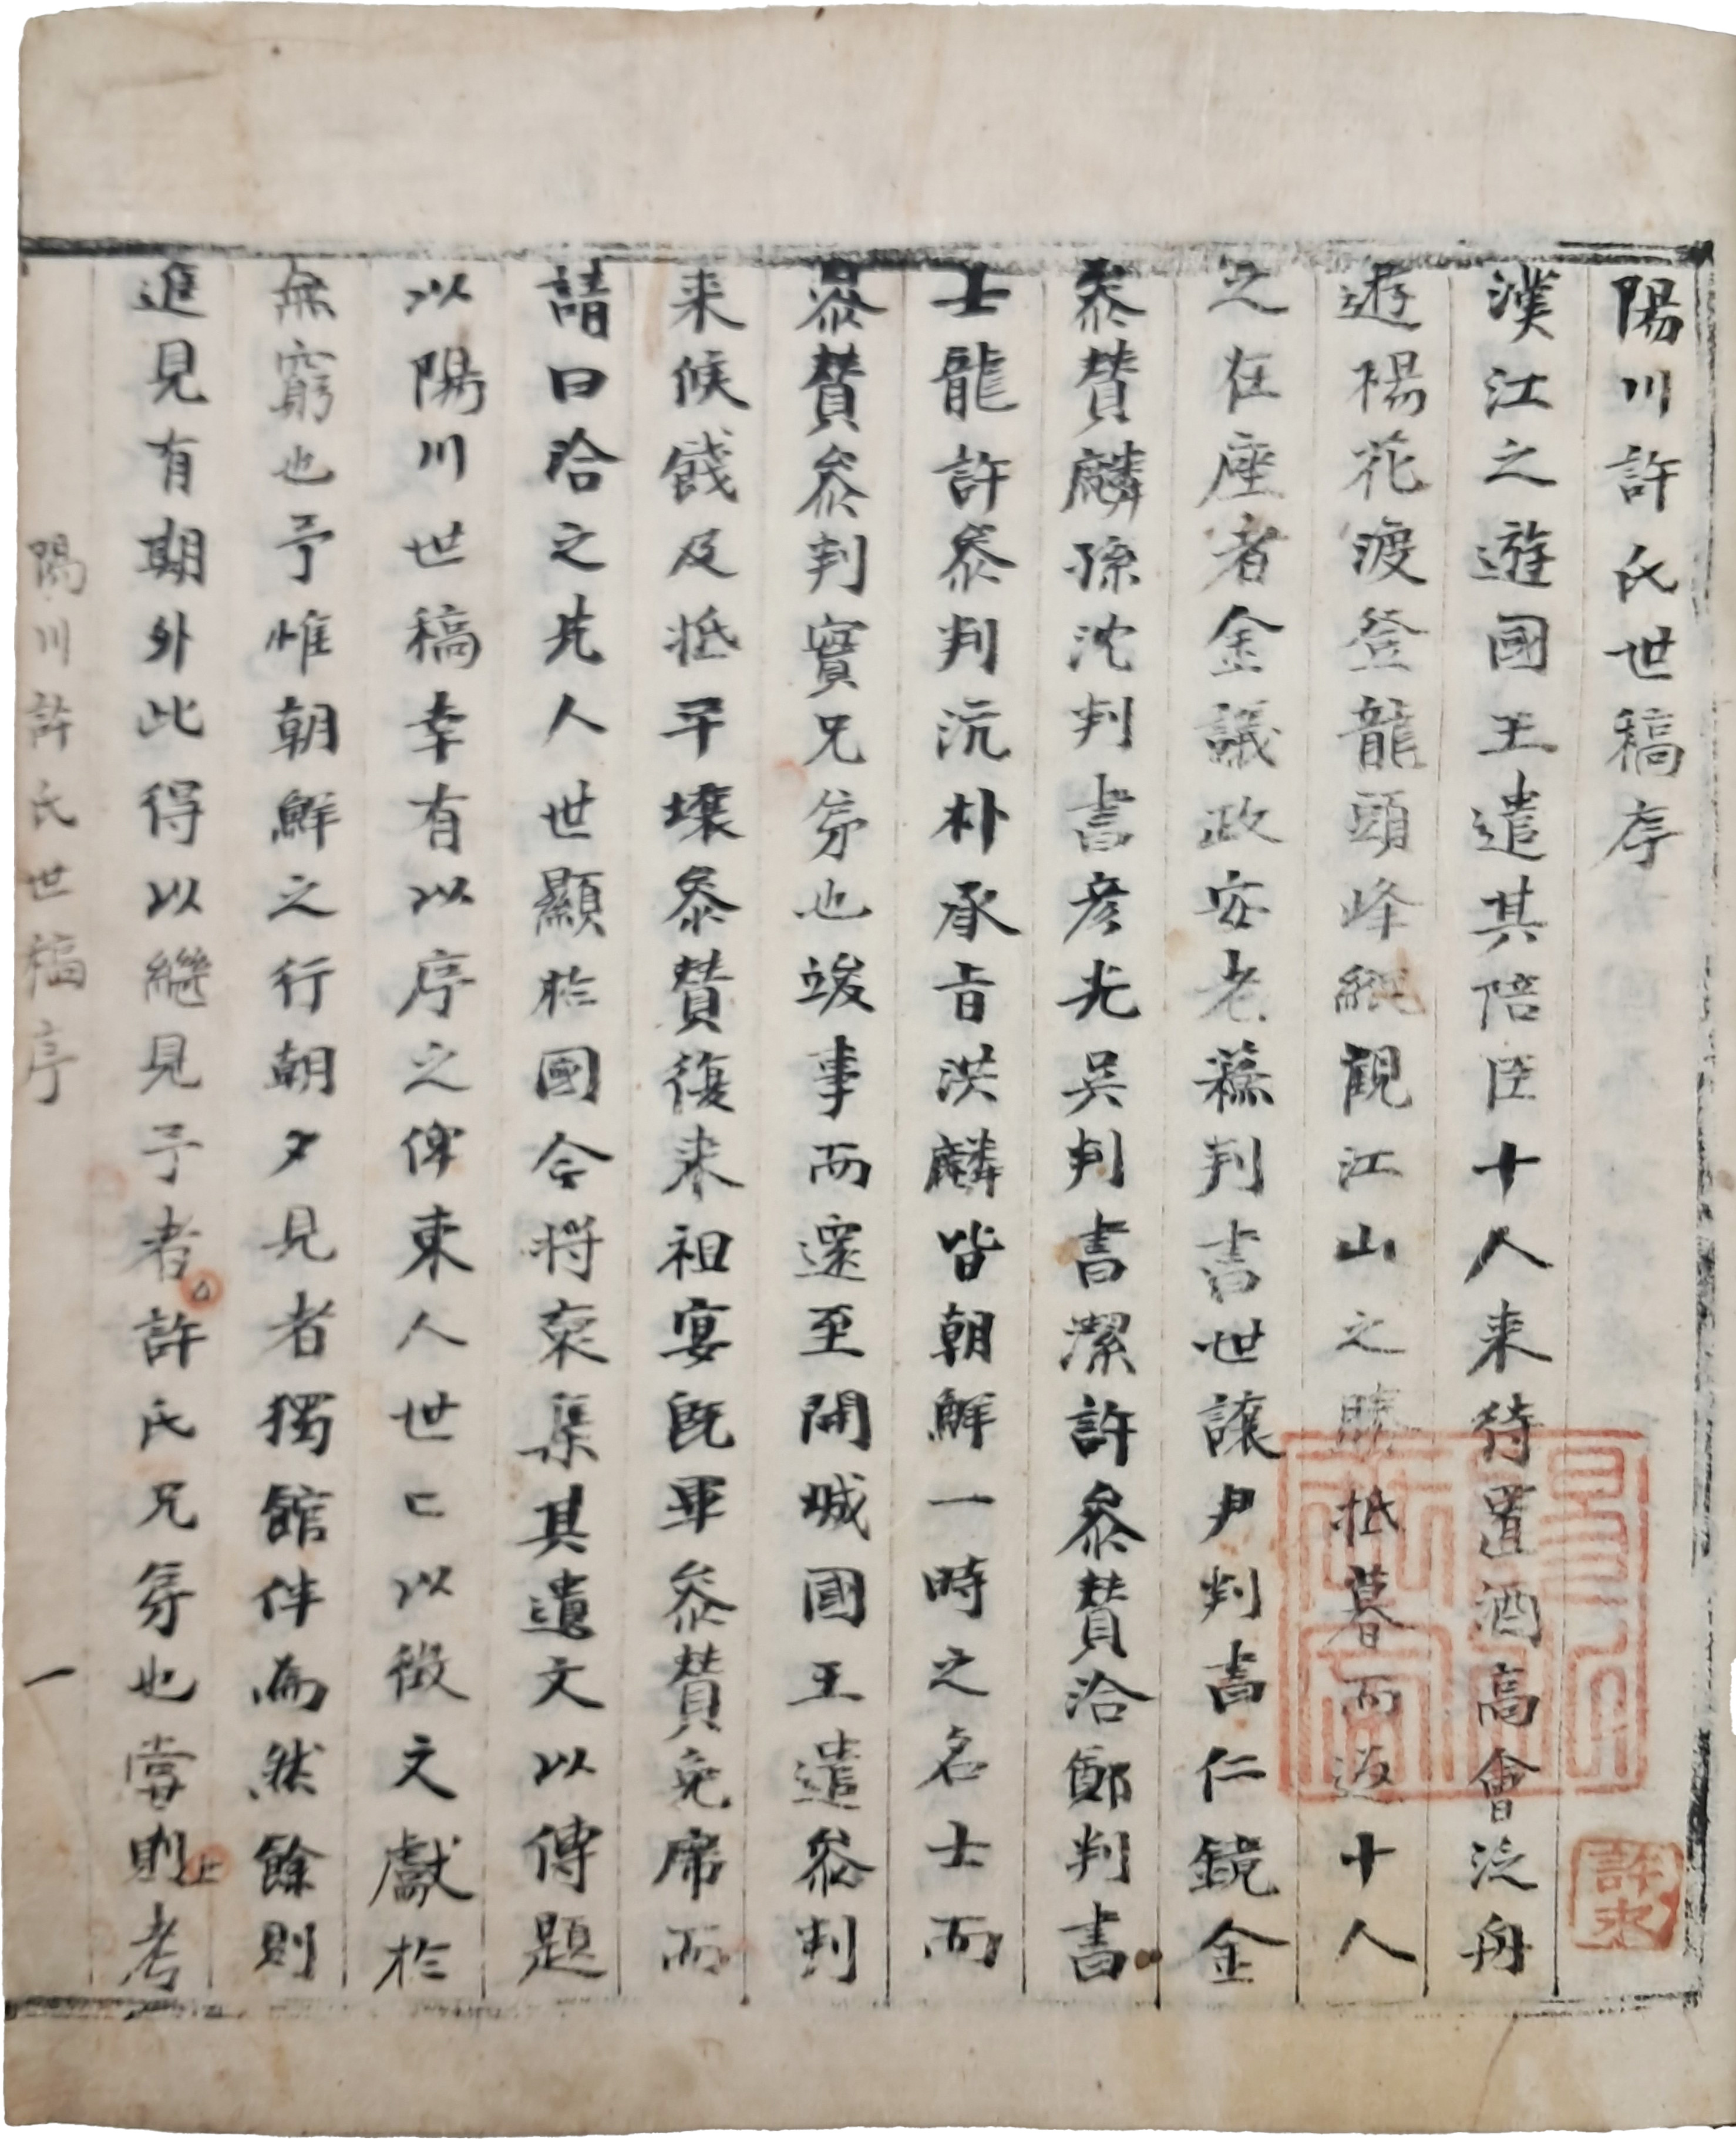 陽川許氏世稿序
漢江之遊國王遣其陪臣十人来待置酒髙會泛舟
遊楊花渡登龍頭峰縱觀江山之勝抵暮而返十人
之在座者金議政安老蘇判書世讓尹判書仁鏡金
叅賛麟孫沈判書彦光吳判書潔許叅賛洽鄭判書
士龍許叅判沆朴承旨洪麟皆朝鮮一時之名士而
叅賛叅判實兄弟也竣事而還至開城國王遣叅判
来候餞及抵平壤叅賛復来祖宴旣畢叅賛免席而
請曰洽之先人世顯於國今將裒集其遺文以傳題
以陽川世稿幸有以序之俾東人世亡以徵文獻於
無窮也予惟朝鮮之行朝夕見者獨館伴為然餘則
進見有期外此得以繼見予者許氏兄弟也嘗則考
陽川許氏世稿序
一
許